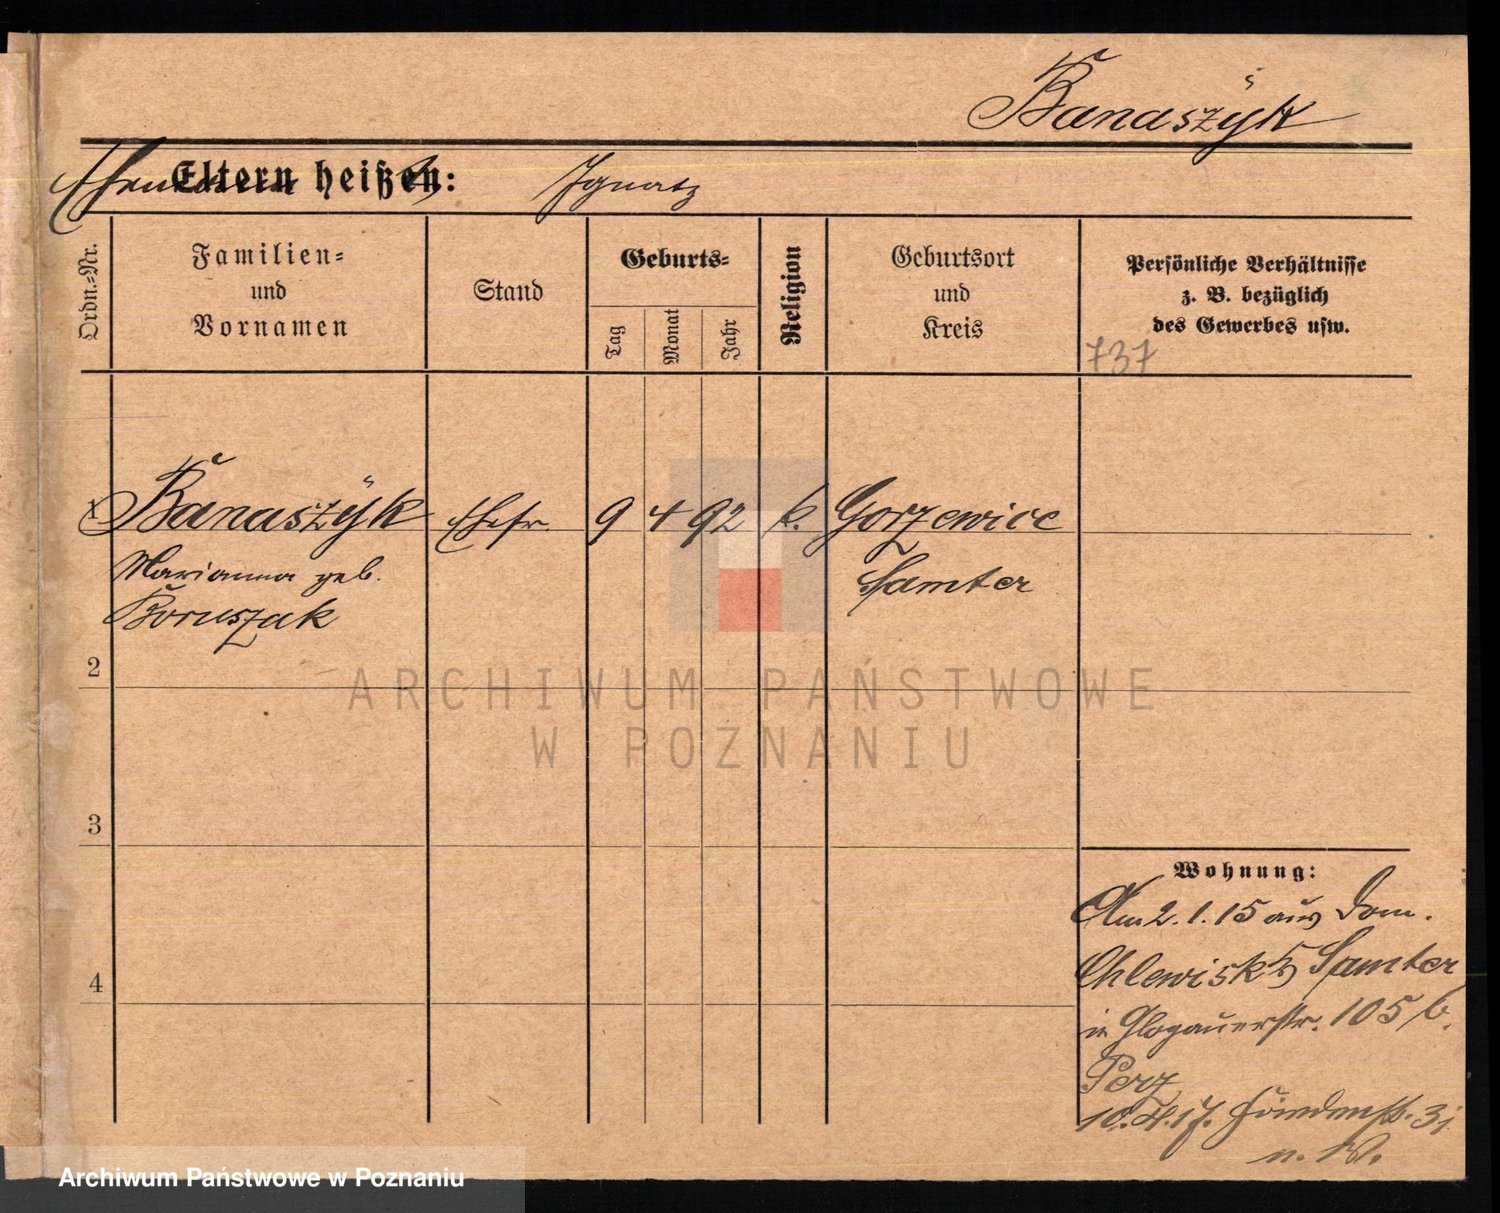 Banaszÿk
Ehemann Eltern heißen: Ignatz
Ordn.=Nr.
Familien=
und
Vornamen
Stand
Geburts=
Tag
Monat
Jahr
Religion
Geburtsort
und
Kreis
Persönliche Verhältnisse
z. B. bezüglich
des Gewerbes usw.
737
1 Banaszÿk Ehefr. 9 4 92 k. Gorzewice
Marianna geb. Samter
Boruszak
2
3
4
Wohnung:
Am 2.1.15 aus Dom.
Chlewisk Samter
in Glogauerstr. 105 b.
Perz
10.4.17. 3
n. W.
ARCHIWUM PAŃSTWOWE
W POZNANIU
Archiwum Państwowe w Poznaniu